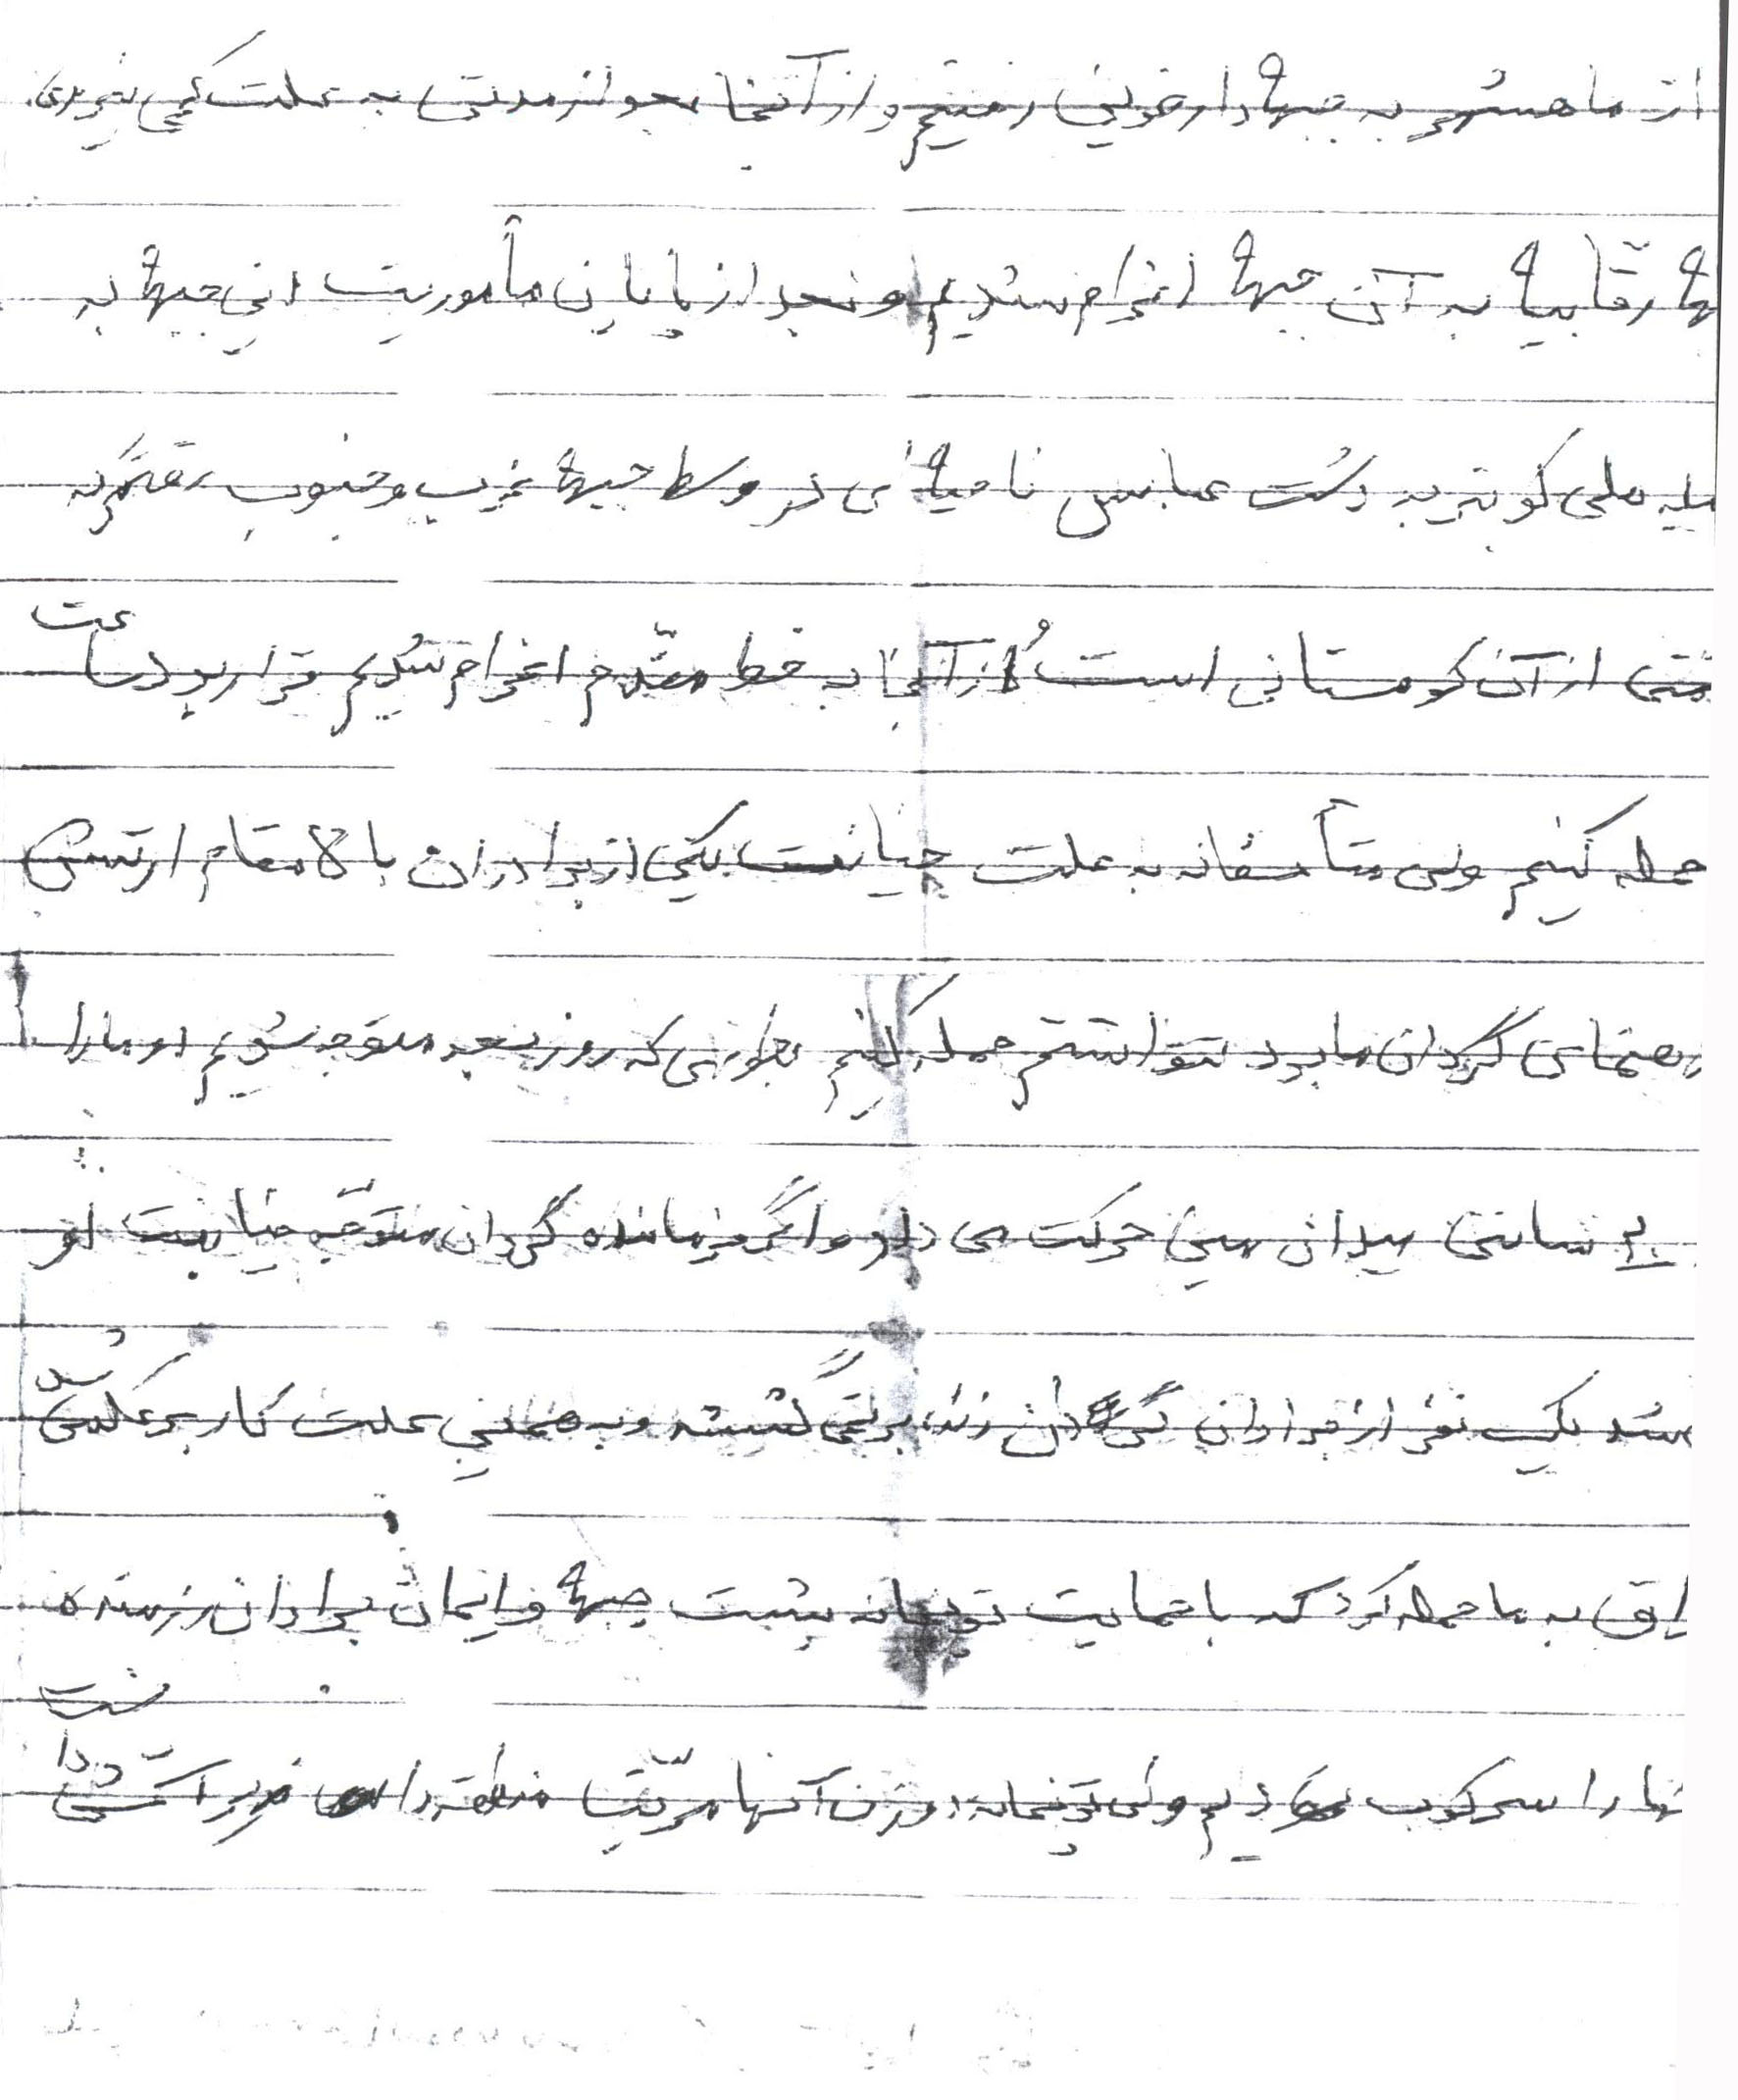 از ماهشهر به جبهه دارخوین رفتیم و از آنجا بعد از مدتی به علت کمی نیروی
رقابیه به آن جبهه اعزام شدیم و بعد از پایان مأموریت این جبهه به
ملی گوئیم به دشت عباس ناحیه ای در وسط جبهه غرب و جنوب رفتیم که
از آن کوهستانی است از آنجا به خط مقدم اعزام شدیم قرار بود ساعت
حمله کنیم ولی متأسفانه به علت خیانت یکی از برادران بالا مقام ارتشی
رهنمای گردان ما بود نتوانستیم حمله کنیم بطوری که روز بعد متوجه شدیم او ما را
سانتی میدان مین حرکت می داد و اگر فرمانده گردان متوجه خیانت او
یک نفر از برادران گردان زنده برنمی گشت و به همین علت کار بر عکس شد
به ما حمله کرد که با حمایت توپخانه پشت جبهه و ایمان برادران رزمنده
را سرکوب کردیم ولی توپخانه دوزن آنها مرتباً منطقه را زیر آتش داشت